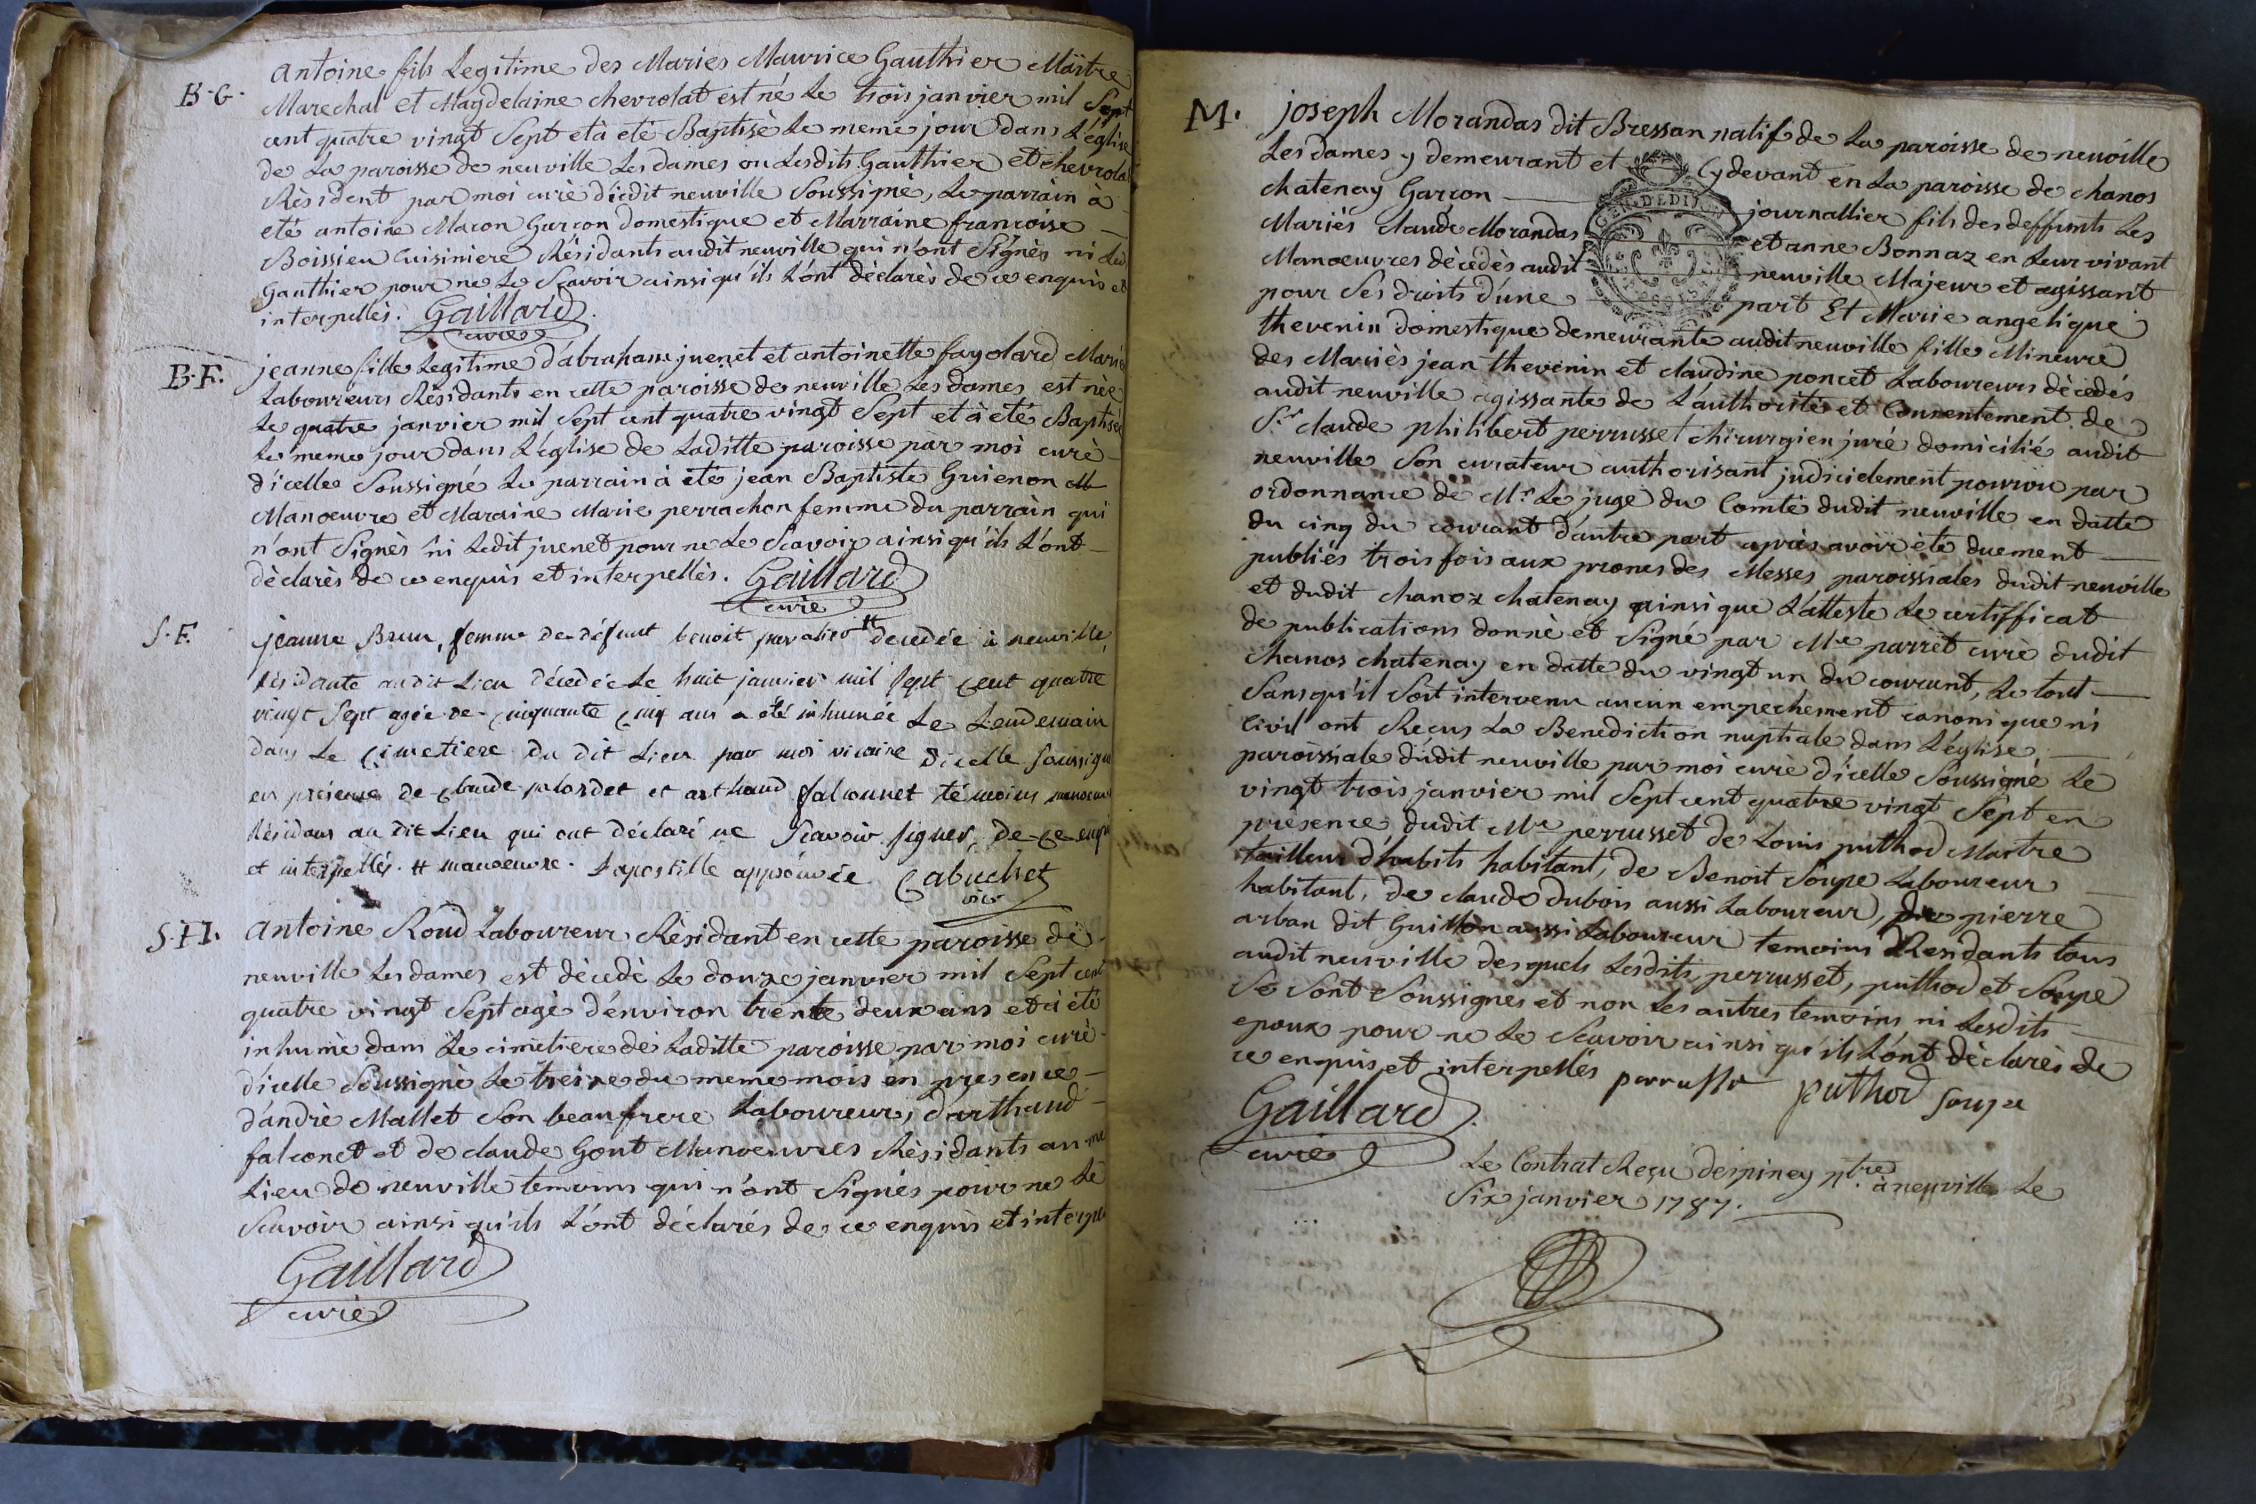 B·G·
antoine fils Legitime des Mariés Maurice Gauthier Maitre
Marechal et Magdelaine chevrolat est né le trois janvier mil Sept
cent quatre vingt Sept età eté Baptisé le meme jour dans L'église
de La paroisse de neuville Les dames ou Lesdits Gauthier et chevrolat
Résident par moi curé d'icdit neuville Soussigné, Le parrain à
eté antoine Macon Garcon domestique et Marraine francoise
Boissieu Cuisiniere Résidants audit neuville qui n'ont Signès ni Led.
Gauthier pour ne le Scavoir ainsi qu'ils L'ont déclarés de ce enquis et
interpellés. Gaillard
curé
B·F.
jeanne fille Legitime d'abraham juenet et antoinette fayolard Mariés
Laboureurs Résidants en cette paroisse de neuville Les dames est née
Le quatre janvier mil Sept cent quatre vingt Sept et à eté Baptisée
le meme jour dans L'église de Laditte paroisse par moi curé
d'icelle Soussigné Le parrain à eté jean Baptiste Guienon
Manoeuvre et Maraine Marie perrachon femme du parrain qui
n'ont Signès ni Ledit juenet pour ne Le Scavoir ainsi qu'ils L'ont
déclarès de ce enquis et interpellès. Gaillard
curé
S·F.
jeanne Brun, femme de défunt benoit # decedée à neuville,
résidante audit Lieu décedée le huit janvier mil sept cent quatre
vingt Sept agée de cinquante cinq ans a été inhumée Le Lendemain
dans Le Cimetiere du dit Lieu par moi vicaire d'icelle soussigné
en présence de claude et arthaud falconnet témoins
Résidans au dit Lieu qui ont déclaré ne Scavoir signer, de ce enquis
et interpellés. # manoeuvre. L'apostille approuvée Cabuchet
vic
S·H.
antoine Roud Laboureur Résidant en cette paroisse de
neuville Les dames est dècedè Le douze janvier mil Sept cent
quatre vingt Sept agè d'environ trente deux ans et à eté
inhumè dans Le cimetiere de Laditte paroisse par moi curé
d'icelle Soussignè Le treize du meme mois en presence
d'andrè Mallet Son beaufrere Laboureur, d'arthaud
falconet et de claude Gont Manoeuvres Résidants au me
Lieu de neuville temoins qui n'ont Signés pour ne Le
Scavoir ainsi qu'ils L'ont déclarés de ce enquis et interpe
Gaillard
curé
M.
joseph Morandas dit Bressan natif de La paroisse de neuville
Les dames y demeurant et Cydevant en La paroisse de chanos
chatenay Garcon journallier fils des deffunts Les
Mariés Claude Morandas et anne Bonnaz en Leur vivant
Manoeuvres dècedès audit neuville Majeur et agissant
pour Ses droits d'une part Et Marie angelique
GEN. DE DIJON
thevenin domestique demeurante audit neuville fille Mineure
des Mariès jean thevenin et claudine poncet Laboureurs dècedés
audit neuville agissante de L'authorité et Consentement de
Sr. claude philibert perrusset chirurgien juré domicilié audit
neuville Son curateur authorisant judicielement pourvu par
ordonnance de Mr. Le juge du Comté dudit neuville en datte
du cinq du courant d'autre part après avoir été duement
publiés trois fois aux prones des Messes paroissiales dudit neuville
et dudit chanoz chatenay ainsi que L'atteste Le certifficat
de publications donnè et Signé par Mre parret curè dudit
chanos chatenay en datte du vingt un du courant, Le tout
Sans qu'il Soit intervenu aucun empechement canonique ni
Civil ont Reçus La Benediction nuptiale dans L'église
paroissiale dudit neuville par moi curé d'icelle Soussigné Le
vingt trois janvier mil Sept cent quatre vingt Sept en
presence dudit Mre perrusset de Louis puthod Maitre
tailleur d'habits habitant, de Benoit Soupe Laboureur
habitant, de claude dubois aussi Laboureur, pierre
arban dit Guillon aussi Laboureur temoins Residants tous
audit neuville desquels Lesdits perrusset, puthod et Soupe
Se Sont Soussignes et non Les autres temoins ni Lesdits
epoux pour ne Le Scavoir ainsi qu'ils L'ont dèclarès de
ce enquis et interpellés perrusset puthod Soupe
Gaillard
curé
Le Contrat Reçu despiney ntre à neuville Le
Six janvier 1787.